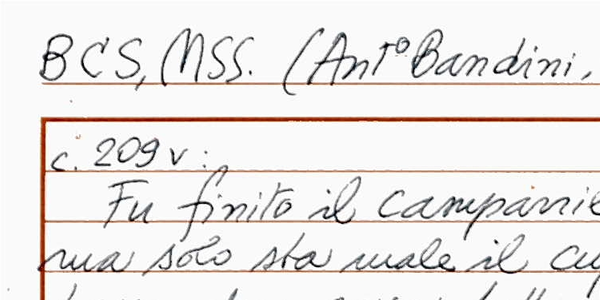 BCS, MSS. (Ant° Bandini,
c. 209 v :
Fu finito il campanile
ma solo sta male il cu